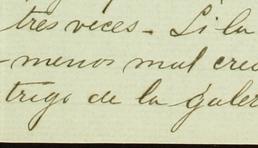 tres veces - Si la
menos mal cre
trigo de la galer